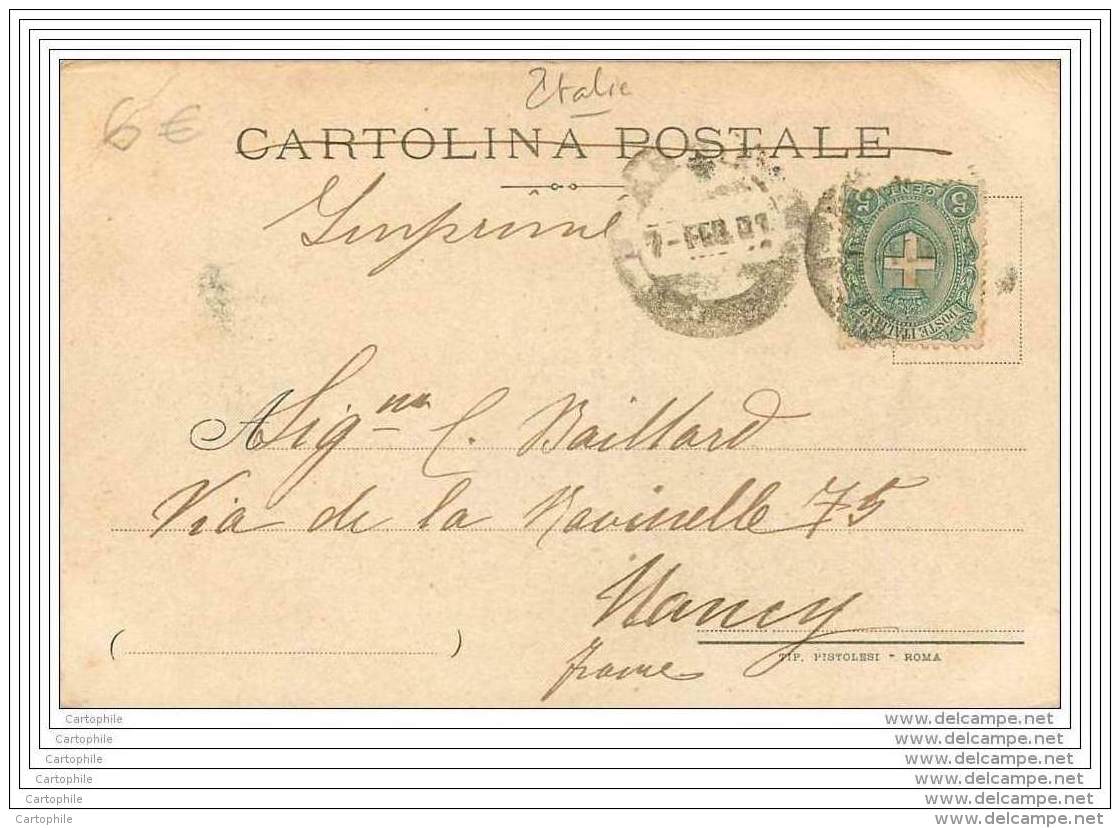 Italie
6 €
CARTOLINA POSTALE
Imprimé
7-FEB.01
5 CENT. 5
POSTE ITALIANE
A Sig.na C. Baillard
Via de la Ravinelle 75
Nancy
France
(                    )
TIP. PISTOLESI - ROMA
Cartophile www.delcampe.net
Cartophile www.delcampe.net
Cartophile www.delcampe.net
Cartophile www.delcampe.net
Cartophile www.delcampe.net
Cartophile www.delcampe.net